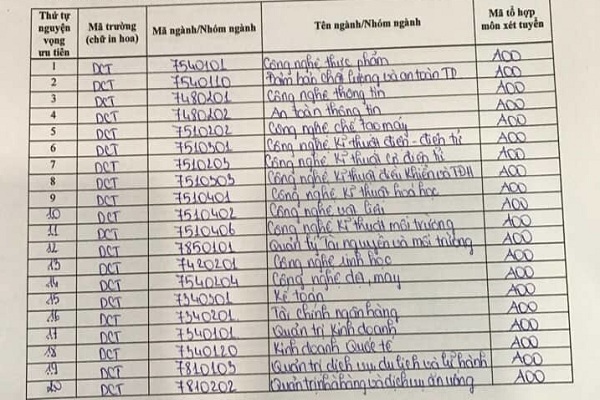 Thứ tự nguyện vọng ưu tiên | Mã trường (chữ in hoa) | Mã ngành/Nhóm ngành | Tên ngành/Nhóm ngành | Mã tổ hợp môn xét tuyển
1 DCT 7540101 Công nghệ thực phẩm A00
2 DCT 7540110 Đảm bảo chất lượng và an toàn TP A00
3 DCT 7480201 Công nghệ thông tin A00
4 DCT 7480202 An toàn thông tin A00
5 DCT 7510202 Công nghệ chế tạo máy A00
6 DCT 7510301 Công nghệ kĩ thuật điện - điện tử A00
7 DCT 7510203 Công nghệ kĩ thuật cơ điện tử A00
8 DCT 7510303 Công nghệ kĩ thuật điều khiển và TĐH A00
9 DCT 7510401 Công nghệ kĩ thuật hoá học A00
10 DCT 7510402 Công nghệ vật liệu A00
11 DCT 7510406 Công nghệ kĩ thuật môi trường A00
12 DCT 7850101 Quản lý tài nguyên và môi trường A00
13 DCT 7420201 Công nghệ sinh học A00
14 DCT 7540204 Công nghệ dệt, may A00
15 DCT 7340301 Kế toán A00
16 DCT 7340201 Tài chính ngân hàng A00
17 DCT 7340101 Quản trị kinh doanh A00
18 DCT 7340120 Kinh doanh Quốc tế A00
19 DCT 7810103 Quản trị dịch vụ du lịch và lữ hành A00
20 DCT 7810202 Quản trị nhà hàng và dịch vụ ăn uống A00